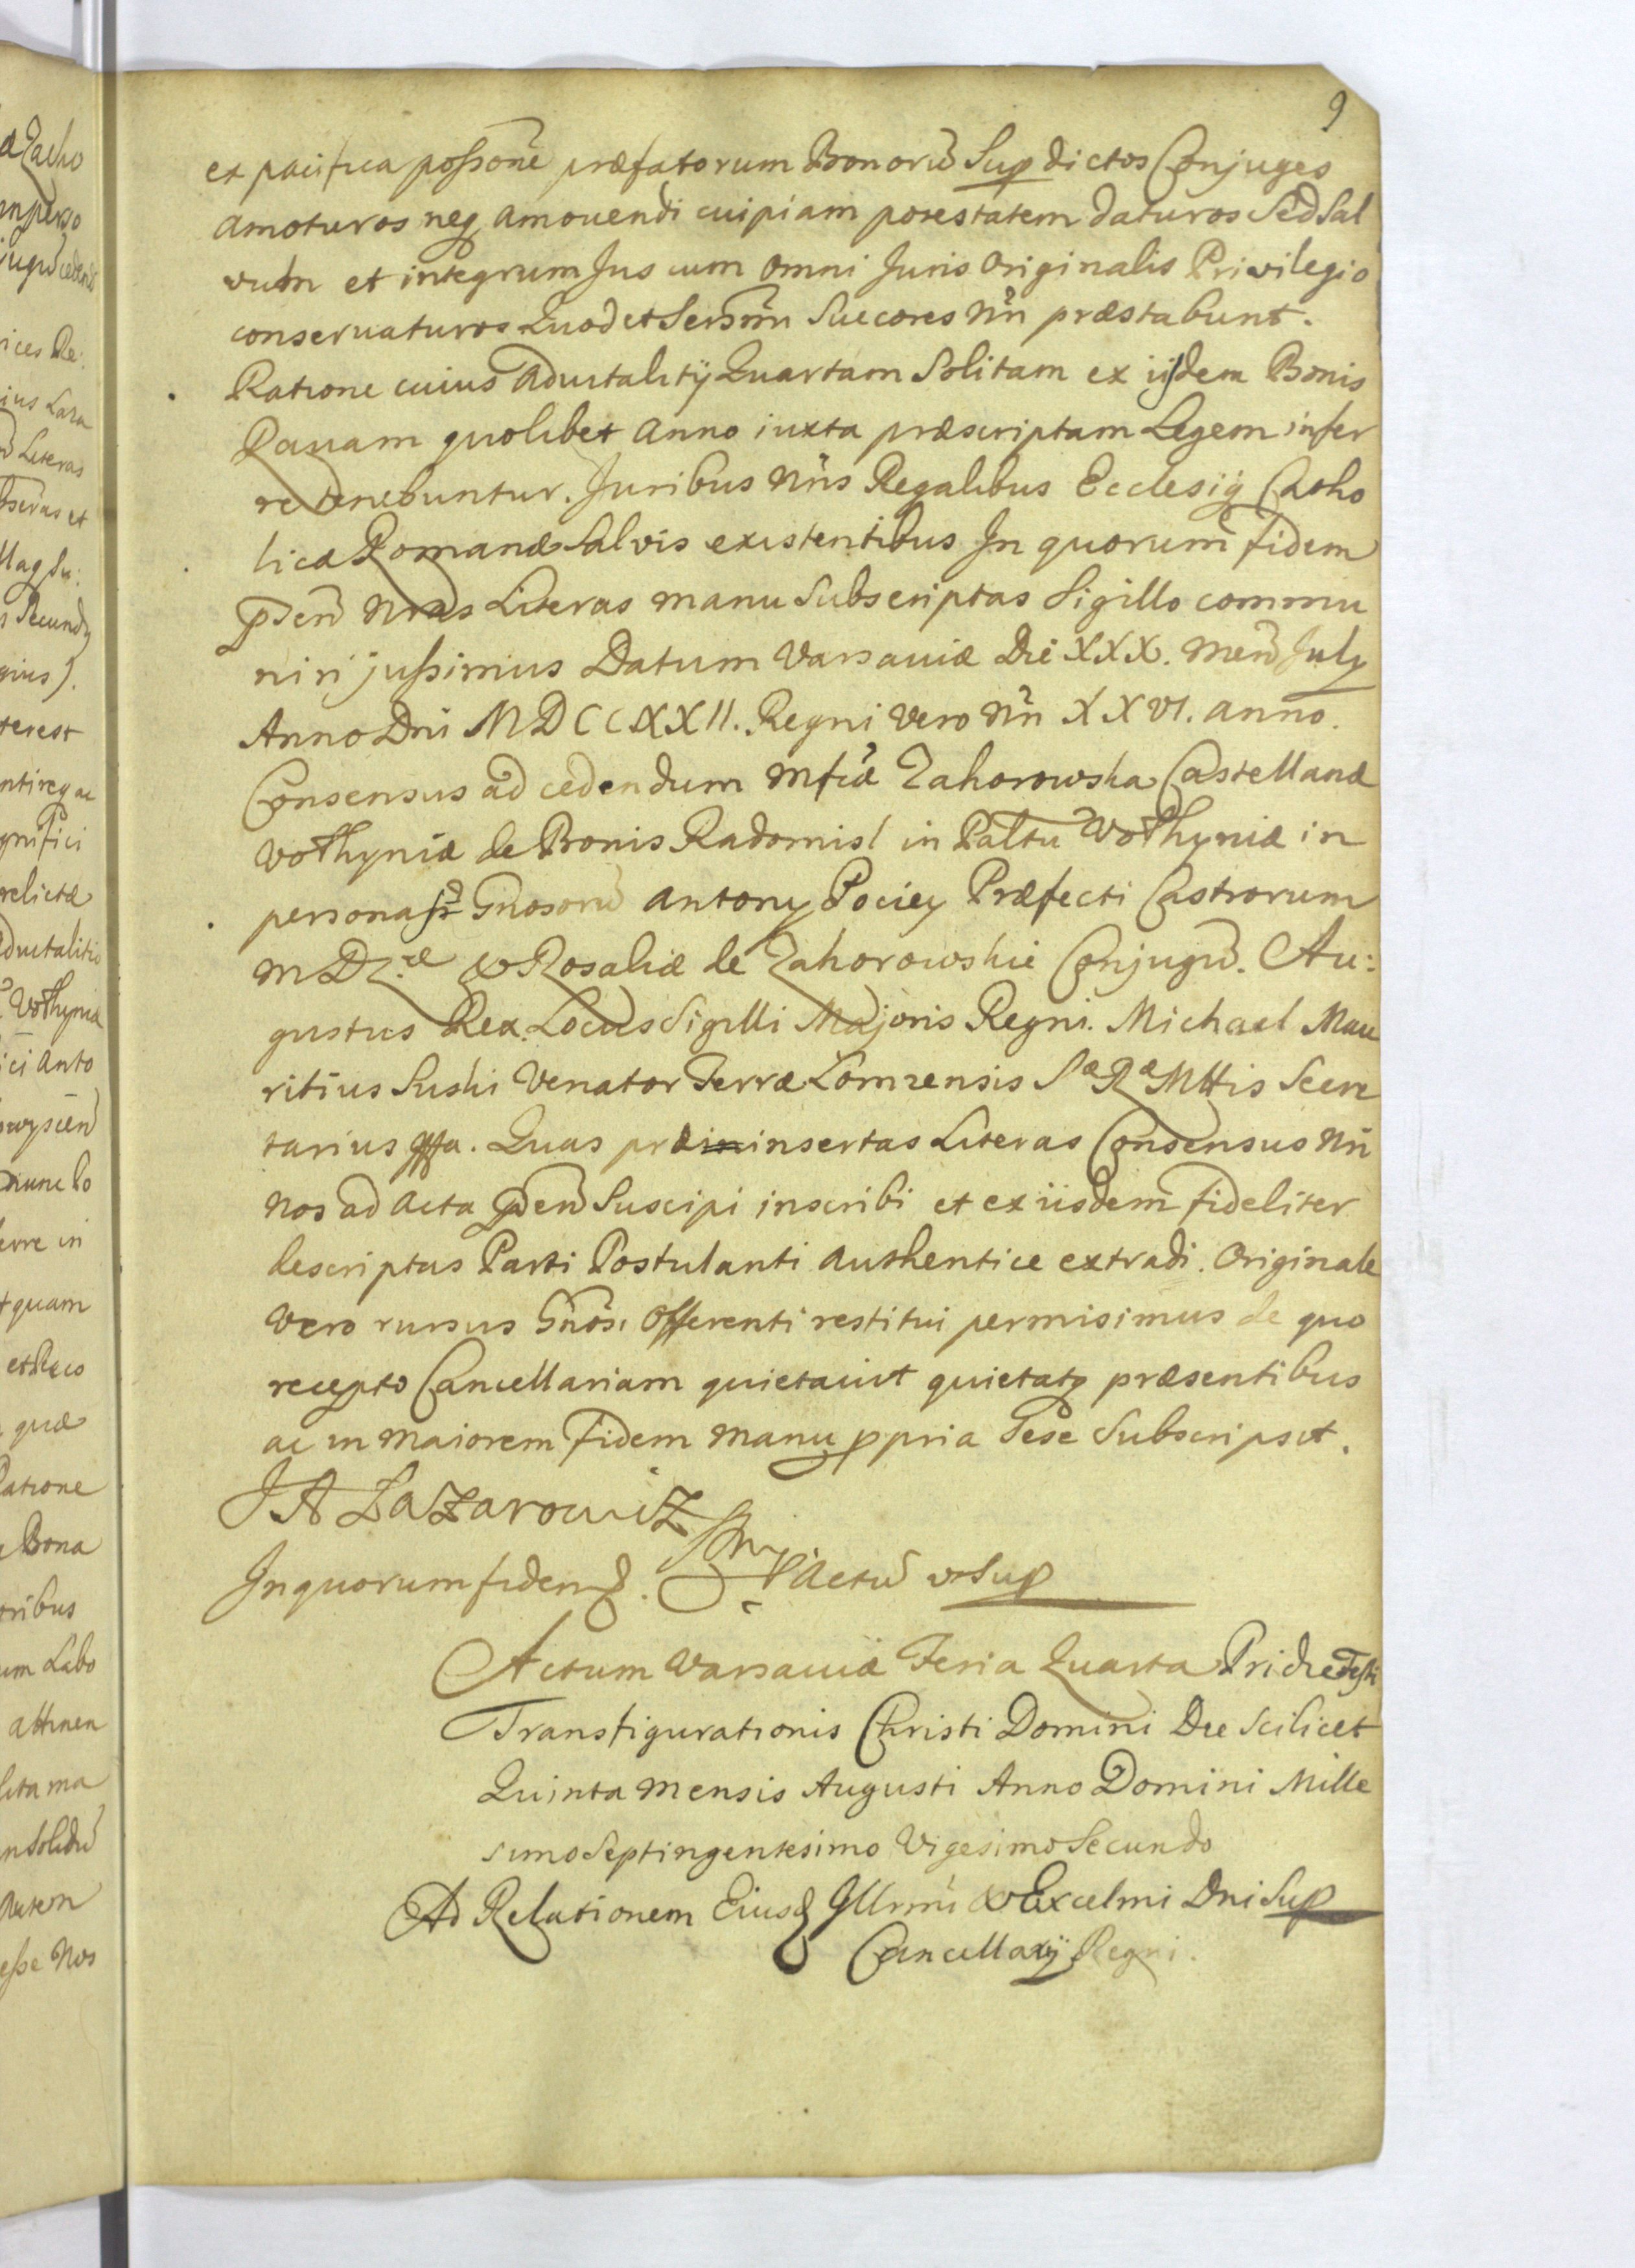 9
ex pacifica possone præfatorum Bonorũ Sup dictos Conjuges
amoturos neq amouendi cuipiam potestatem daturos Sed Sal
vum et integrum Jus cum omni Juris Originalis Privilegio
conservaturos Quod et Serssmi Succores Nri præstabunt.
Ratione cuius aduitalitij Quartam Solitam ex iisdem Bonis
Ravam quolibet anno iuxta præscriptam Legem infer
re tenebuntur. Juribus Nris Regalibus Ecclesiæq Catho
licæ Romanæ Salvis existentibus In quorum fidem
pñtes Nras Literas manu Subscriptas Sigillo commu
niri jussimus Datum Varsaviæ Die XXX. Mens July
Anno Dni MDCCXXII. Regni vero Nri XXVI. anno.
Consensus ad cedendum Mfcæ Zahorowska Castellanæ
Wołhyniæ de Bonis Radomisl in Paltu Wołhyniæ in
personas Gñosorũ Antony Pociey Præfecti Castrorum
M D L æ & Rosaliæ de Zahorowskie Conjugũ. Au:
gustus Rex. Locus Sigilli Majoris Regni. Michael Mau
ritius Suski Venator Terræ Lomzensis Sæ Ræ Mttis Secre
tarius mpa. Quas præinsertas Literas Consensus Nri
Nos ad Acta pñtia Suscipi inscribi et ex iisdem fideliter
descriptas Parti Postulanti authentice extradi. Originale
Vero rursus Gñosi Offerenti restitui permisimus de quo
recepto Cancellariam quietavit quietatq præsentibus
ac in maiorem fidem manu ppria Sese Subscripsit.
J A Lazarowicz
In quorum fidem. Actũ ut Sup
Actum Varsaviæ Feria Quarta Pridie Festi
Transfigurationis Christi Domini Die scilicet
Quinta Mensis Augusti Anno Domini Mille
simo Septingentesimo Vigesimo Secundo
Ad Relationem Eiusd Illrmi & Excelmi Dni Sup
Cancellarij Regni.